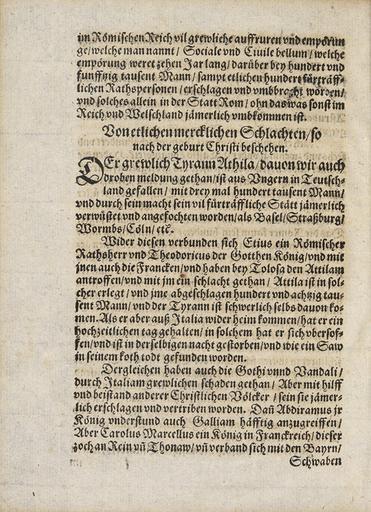 im Römischen Reich vil grewliche auffruren vnd empörun
ge/ welche man nannt/ Sociale vnd Ciuile bellum/ welche
empörung weret zehen Jar lang/ darüber bey hundert vnd
funfftzig tausent Mann/ sampt etlichen hundert fürträff-
lichen Rathspersonen/ erschlagen vnd vmbbracht worden/
vnd solches allein in der Statt Rom/ ohn das was sonst im
Reich vnd Welschland jämerlich vmbkommen ist.
Von etlichen mercklichen Schlachten/ so
nach der geburt Christi beschehen.
DEr grewlich Tyrann Athila/ dauon wir auch
droben meldung gethan/ ist aus Vngern in Teutsch-
land gefallen/ mit drey mal hundert tausent Mann/
vnd durch sein macht sein vil fürträffliche Stätt jämerlich
verwüstet vnd angefochten worden/ als Basel/ Straßburg/
Wormbs/ Cöln/ etc.
Wider diesen verbunden sich Etius ein Römischer
Rathsherr vnd Theodoricus der Gotthen König/ vnd mit
jnen auch die Francken/ vnd haben bey Tolosa den Attilam
antroffen/ vnd mit jm ein schlacht gethan/ Attila ist in sol-
cher erlegt/ vnd jme abgeschlagen hundert vnd achtzig tau-
sent Mann/ vnd der Tyrann ist schwerlich selbs dauon ko-
men. Als er aber auß Italia wider heim kommen/ hat er ein
hochzeitlichen tag gehalten/ in solchem hat er sich vbersof-
fen/ vnd ist in derselbigen nacht gestorben/ vnd wie ein Saw
in seinem koth todt gefunden worden.
Dergleichen haben auch die Gothi vnnd Vandali/
durch Italiam grewlichen schaden gethan/ Aber mit hilff
vnd beistand anderer Christlichen Völcker/ sein sie jämer-
lich erschlagen vnd vertriben worden. Dañ Abdiramus jr
König vnderstund auch Galliam häfftig anzugreiffen/
Aber Carolus Marcellus ein König in Franckreich/ dieser
zoch an Rein vñ Thonaw/ vñ verband sich mit den Bayrn/
Schwaben